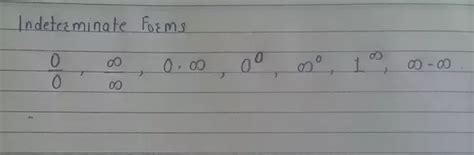 Indeterminate Forms
0/0, ∞/∞, 0·∞, 0⁰, ∞⁰, 1^∞, ∞-∞.